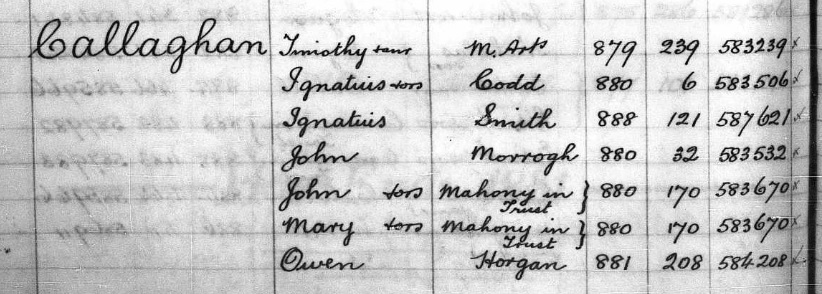 Callaghan Timothy + anr M. Arts 879 239 583239 x
Ignatius + ors Codd 880 6 583506 x
Ignatius Smith 888 121 587621 x
John Morrogh 880 32 583532 x
John + ors Mahony in Trust } 880 170 583670 x
Mary + ors Mahony in Trust } 880 170 583670 x
Owen Horgan 881 208 584208 x